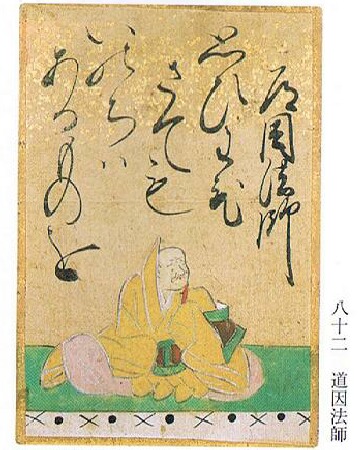 道因法師
思ひわひ
さても
いのちハ
あるものを
八十二　道因法師